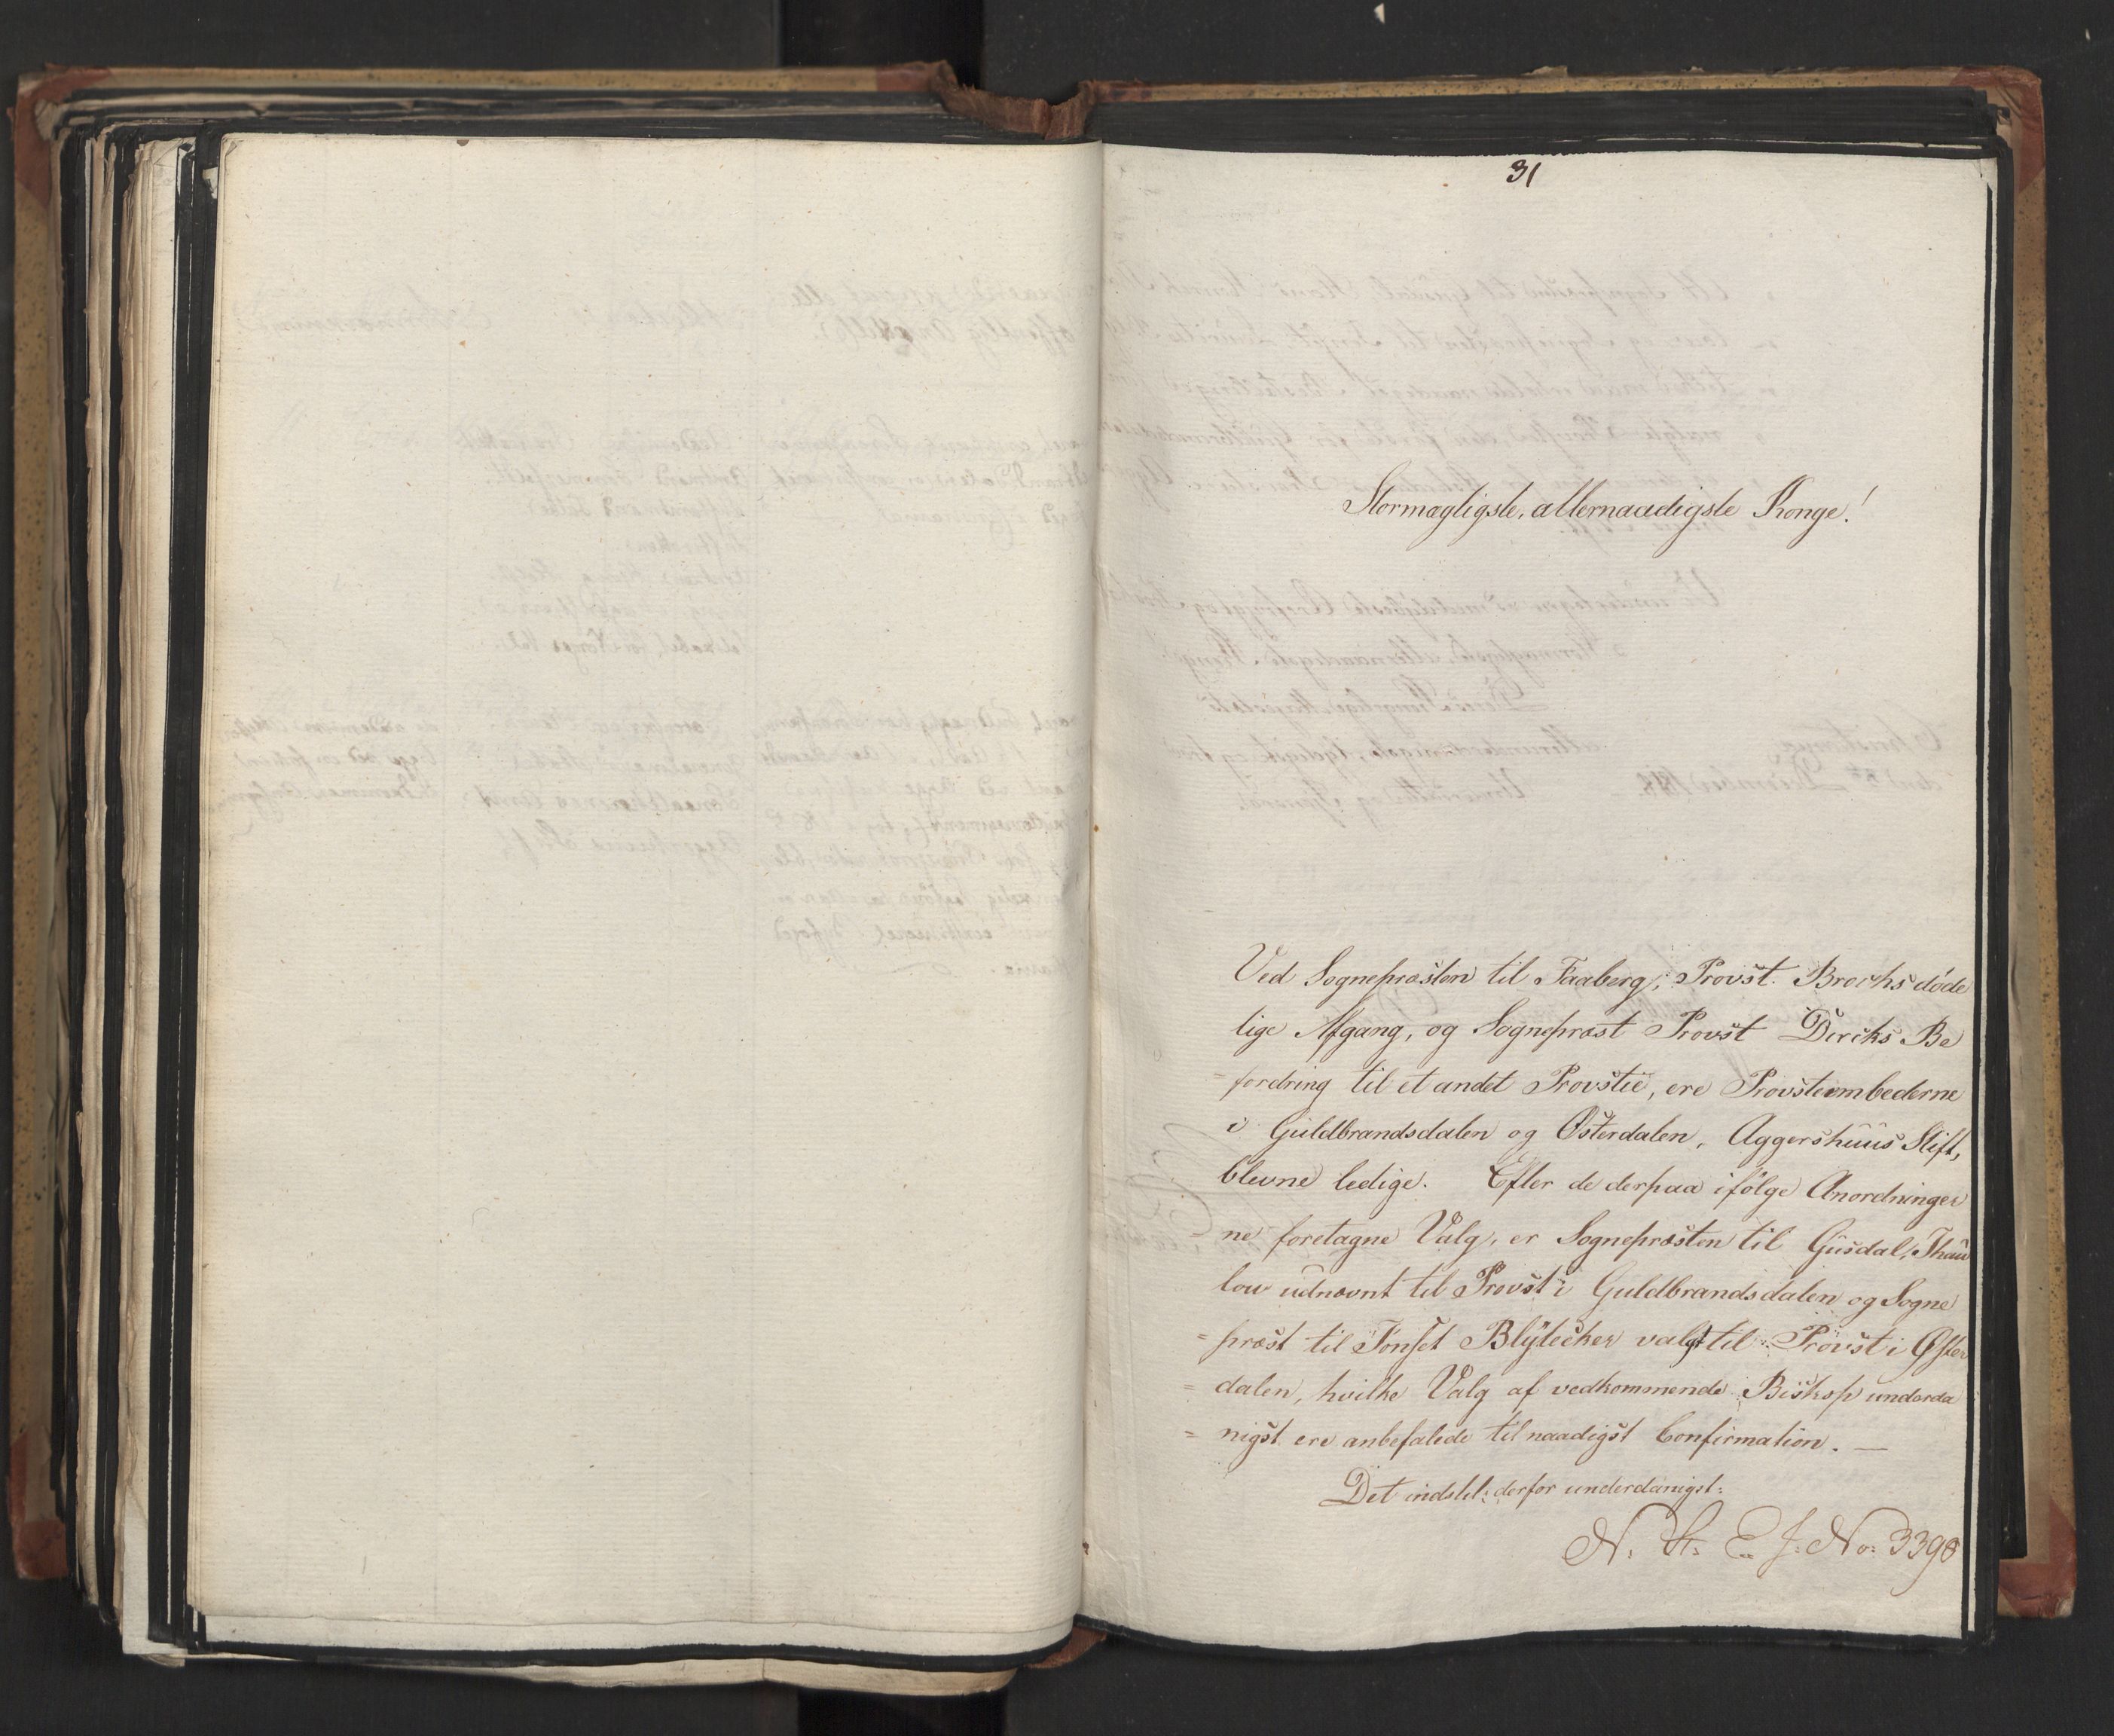 31
Stormægtigste, allernaadigste Konge!
Ved Sognepræsten til Faaberg, Provst Brochs döde
lige Afgang, og Sognepræst Provst Dircks Be
=fordring til et andet Provstie, ere Provsteembederne
i Guldbrandsdalen og Østerdalen, Aggershuus Stift,
blevne ledige. Efter de derpaa ifölge Anordninger
=ne foretagne Valg, er Sognepræsten til Gusdal, Thau
low udnævnt til Provst i Guldbrandsdalen og Sogne
=præst til Tönset Blÿtecker valgt til Provst i Øster
=dalen, hvilke Valg af vedkommende Biskop underda
=nigst ere anbefalede til naadigst Confirmation. —
Det indstil: derfor underdanigst:
No: 3398